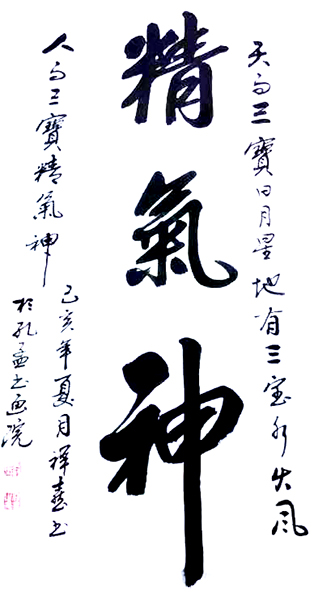 精氣神
天有三寶日月星地有三宝水火風
人有三寶精氣神
己亥年夏月祥喜书
於孔孟书画院